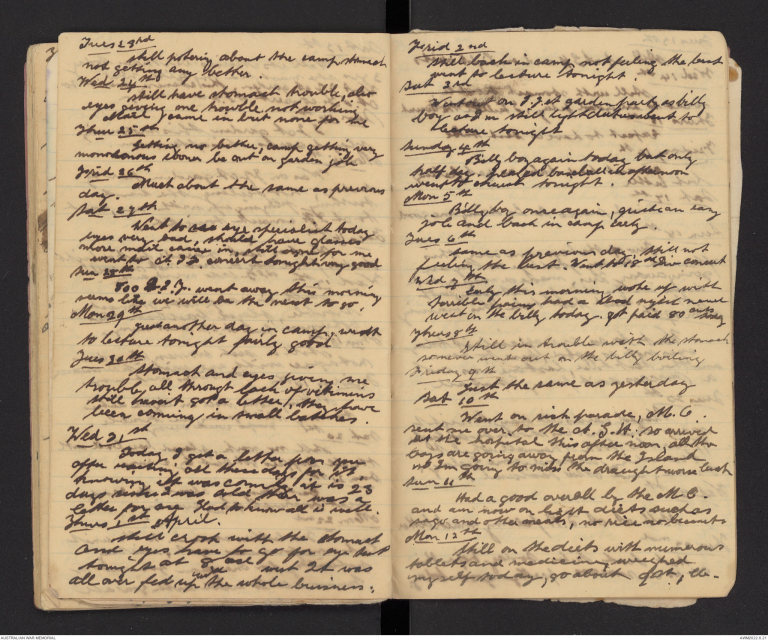 Tues 23rd
still pottering about the camp, stomach
not getting any better.
Wed 24th
still have stomach trouble, also
eyes giving one trouble not working
Mail came in but none for me
Thur 25th
Getting no better, camp getting very
monotonous sooner be out on garden job
Frid 26th
Much about the same as previous
day.
Sat 27th
Went to see eye specialist today
eyes very bad, should have glasses
more mail came in, still none for me
went to A.I.F. concert tonight very good
Sun 28th
700 A.I.F. went away this morning
seems like we will be the next to go.
Mon 29th
Just another day in camp, went
to lecture tonight fairly good
Tues 30th
Stomach and eyes giving me
trouble, all through lack of vitamins
still haven't got a letter, they have
been coming in small batches.
Wed 31st
Today I got a letter from you
after waiting all these days for it
knowing it was coming, it is 23
days since I was told there was a
letter for me. Glad to know all is well.
Thurs 1st April.
still crook with the stomach
and eyes, have to go for eye test
tonight at
all over fed up the whole business.
Frid 2nd
Still back in camp not feeling the best
went to lecture tonight.
Sat 3rd
Went out on garden party as billy
boy as I'm still light duties went to
lecture tonight
Sunday 4th
Billy boy again today but only
half day. played baseball afternoon
went to church tonight.
Mon 5th
Billy boy once again, just an easy
job and back in camp early.
Tues 6th
same as previous day, still not
feeling the best. Went to 18th Div concert
Wed 7th
Early this morning woke up with
terrible pains had a
went on the billy today. got paid 80 cents today
Thurs 8th
Still in trouble with the stomach
however went out on the billy boiling
Friday 9th
Just the same as yesterday
Sat 10th
Went on sick parade, M.O.
sent me over to the A.G.H. so arrived
at the hospital this afternoon, all the
boys are going away from the Island
so I'm going to miss the draught worse luck
Sun 11th
Had a good overall by the M.O.
and am now on light diets such as
sago and other meats, no rice or biscuits
Mon 12th
Still on the diets with numerous
tablets and medicine, weighed
myself today, go about 9st, lb.
AUSTRALIAN WAR MEMORIAL
AWM2022.6.21